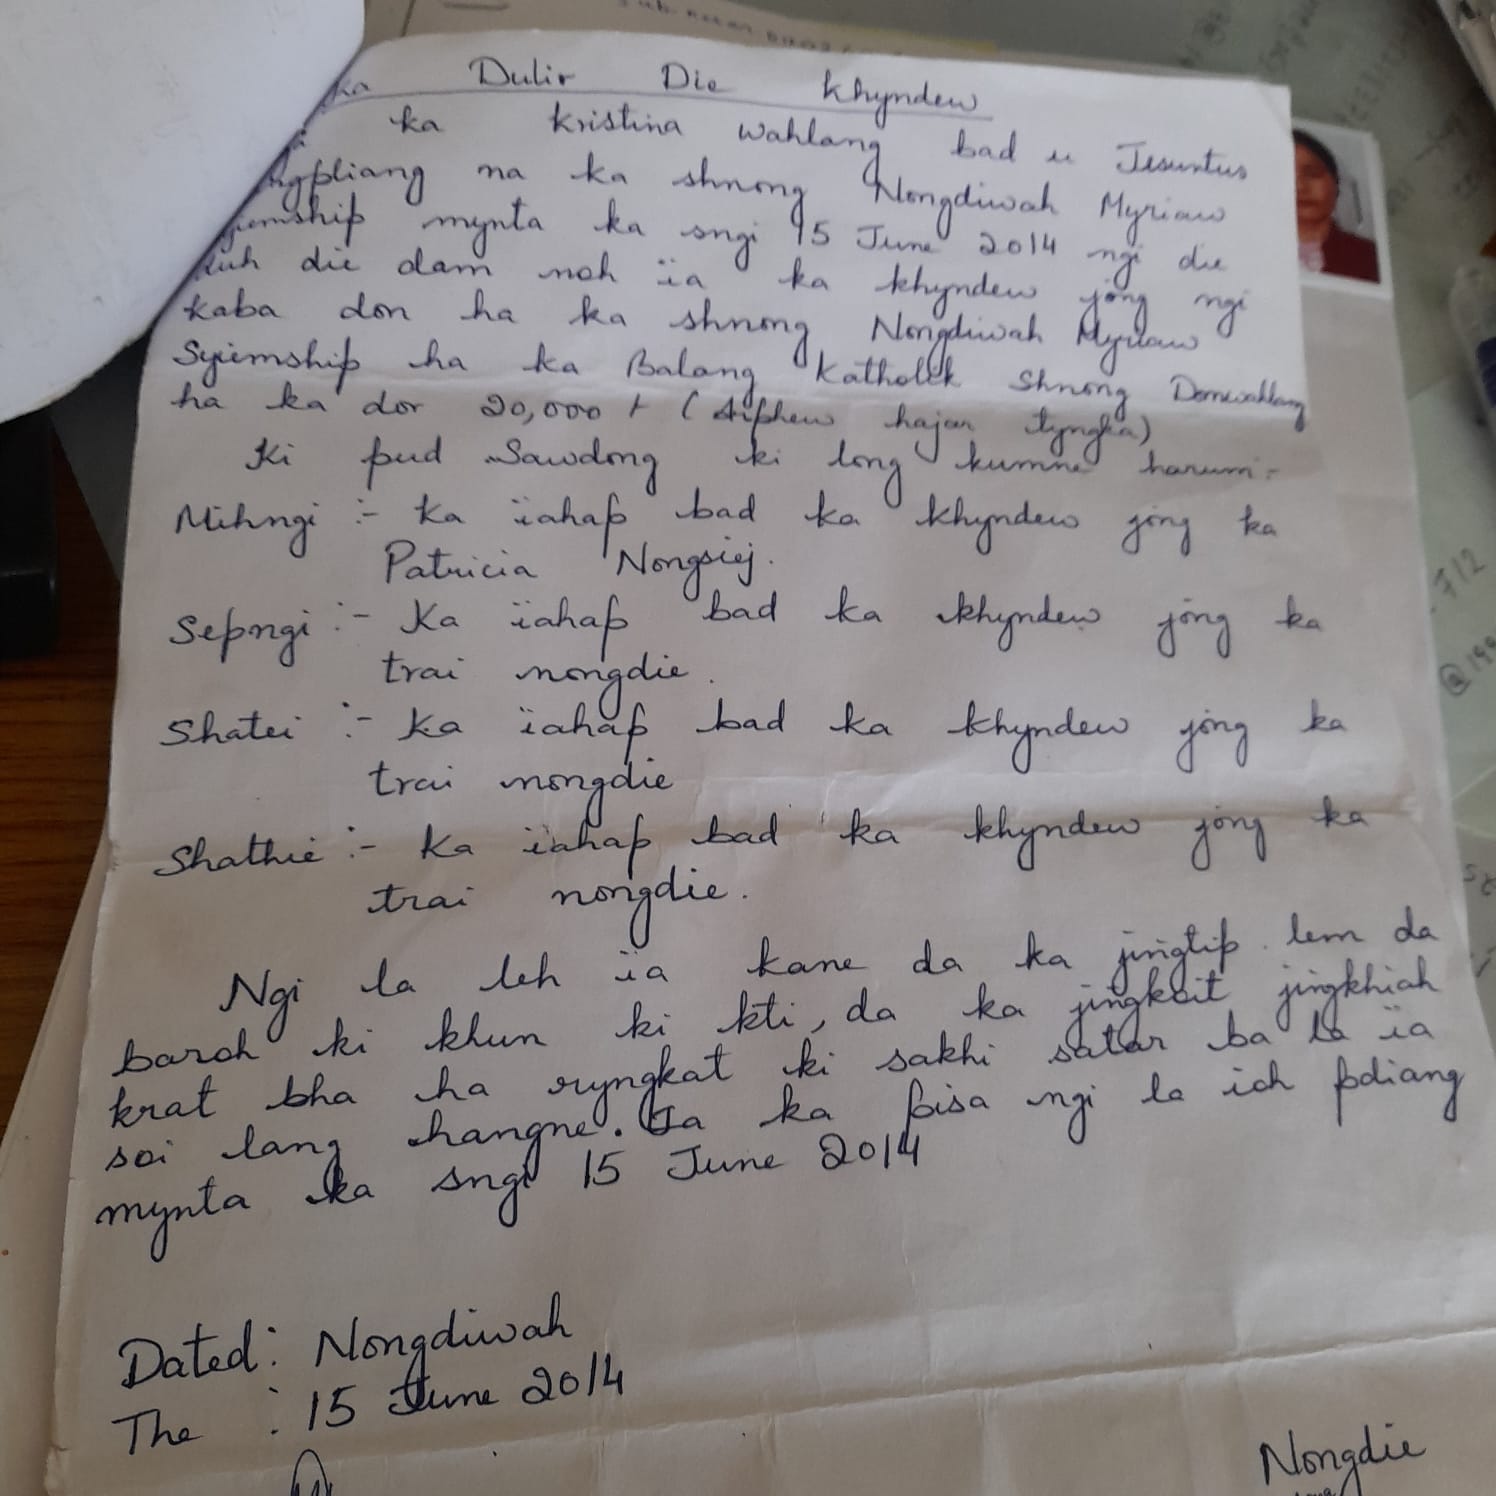 ka Dulir Die Khyndew
ka Kristina Wahlang bad u Jesuntus
ngpliang na ka shnong Nongdiwah Myriaw
iemship mynta ka sngi 15 June 2014 ngi die
die dam noh ïa ka khyndew jong ngi
kaba don ha ka shnong Nongdiwah Myriaw
Syiemship ha ka Balang Katholik Shnong Domwahlang
ha ka dor 20,000 + (Arphew hajar tyngka)
Ki pud Sawdong ki long kumne harum:-
Mihngi :- Ka ïahap bad ka khyndew jong ka
Patricia Nongsiej.
Sepngi :- Ka ïahap bad ka khyndew jong ka
trai nongdie.
Shatei :- Ka ïahap bad ka khyndew jong ka
trai nongdie
Shathie :- Ka ïahap bad ka khyndew jong ka
trai nongdie.
Ngi la leh ïa kane da ka jingtip lem da
baroh ki khun ki kti, da ka jingkoit jingkhiah
krat bha ha ryngkat ki sakhi satar ba la ïa
soi lang hangne. Ïa ka pisa ngi la ioh pdiang
mynta ka sngi 15 June 2014
Dated: Nongdiwah
The : 15 June 2014
Nongdie